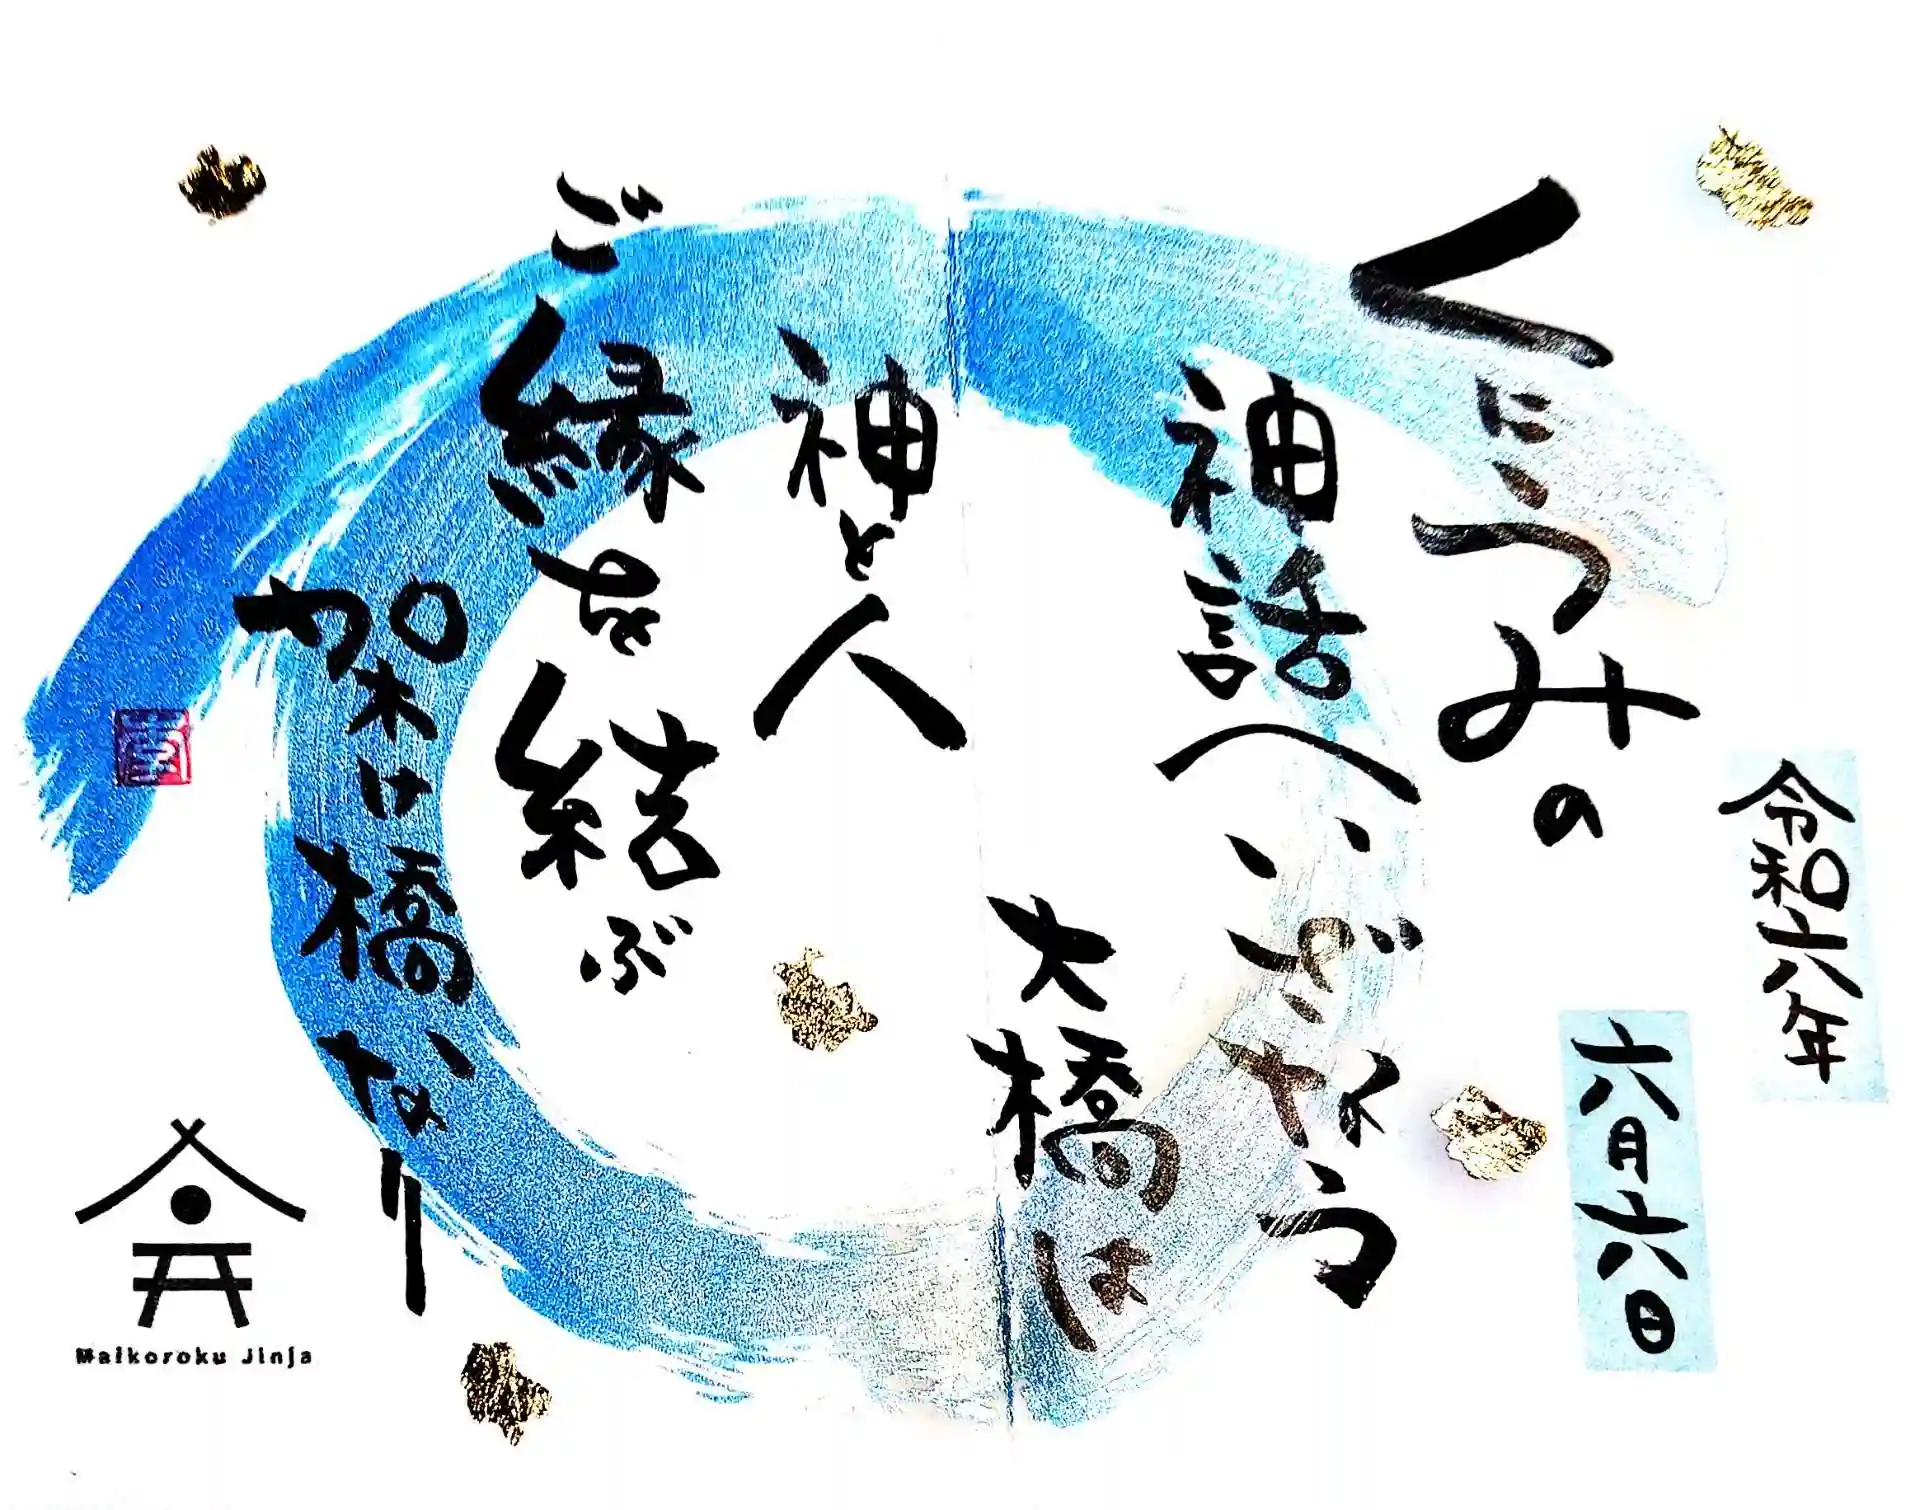 令和六年
六月六日
くにうみの
神話へいざなう
大橋は
神と人
ご縁を結ぶ
架け橋なり
Maikoroku Jinja